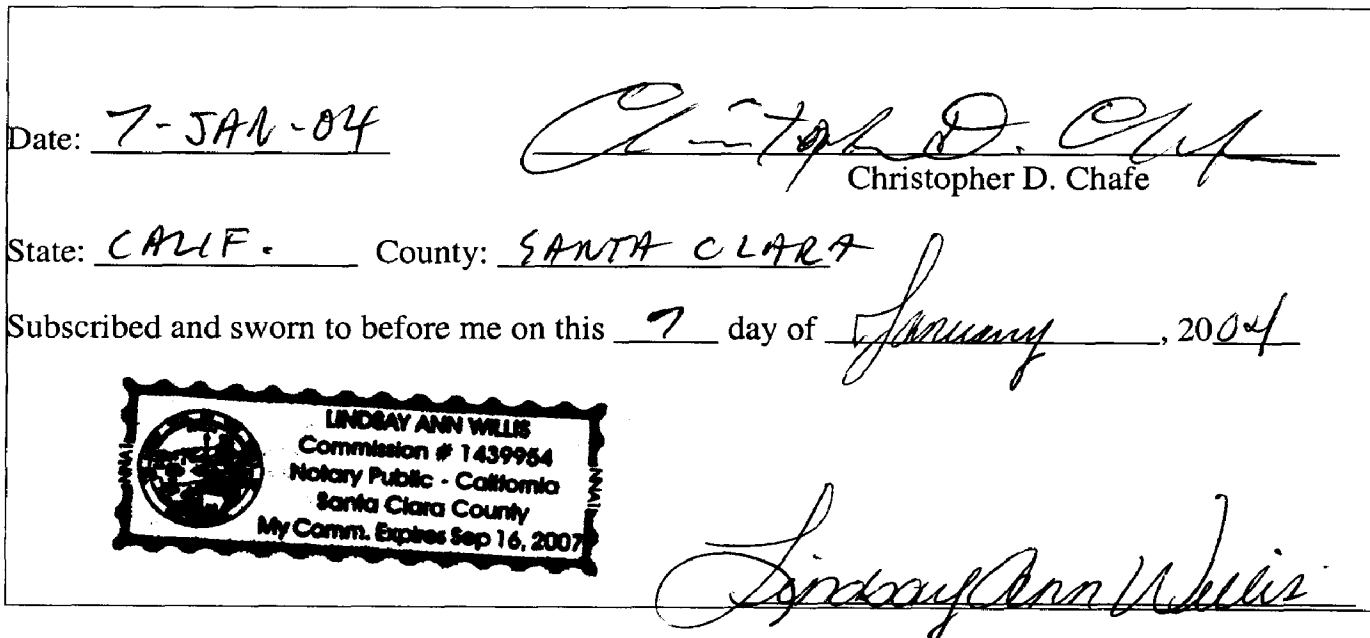 Date: 7-JAN-04 Christopher D. Chafe
Christopher D. Chafe
State: CALIF. County: SANTA CLARA
Subscribed and sworn to before me on this 7 day of January, 2004
LINDSAY ANN WILLIS
Commission # 1439954
Notary Public - California
Santa Clara County
My Comm. Expires Sep 16, 2007
NNA1
NNA1
Lindsay Ann Willis